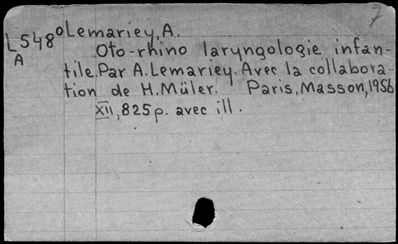 7
L548⁰ Lemariey, A.
A Oto-rhino laryngologie infan-
tile. Par A. Lemariey. Avec la collabora-
tion de H. Müler. Paris, Masson, 1956
XII, 825 p. avec ill.